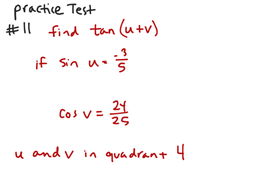 practice Test
#11 find tan (u+v)
if sin u = -3/5
cos v = 24/25
u and v in quadrant 4